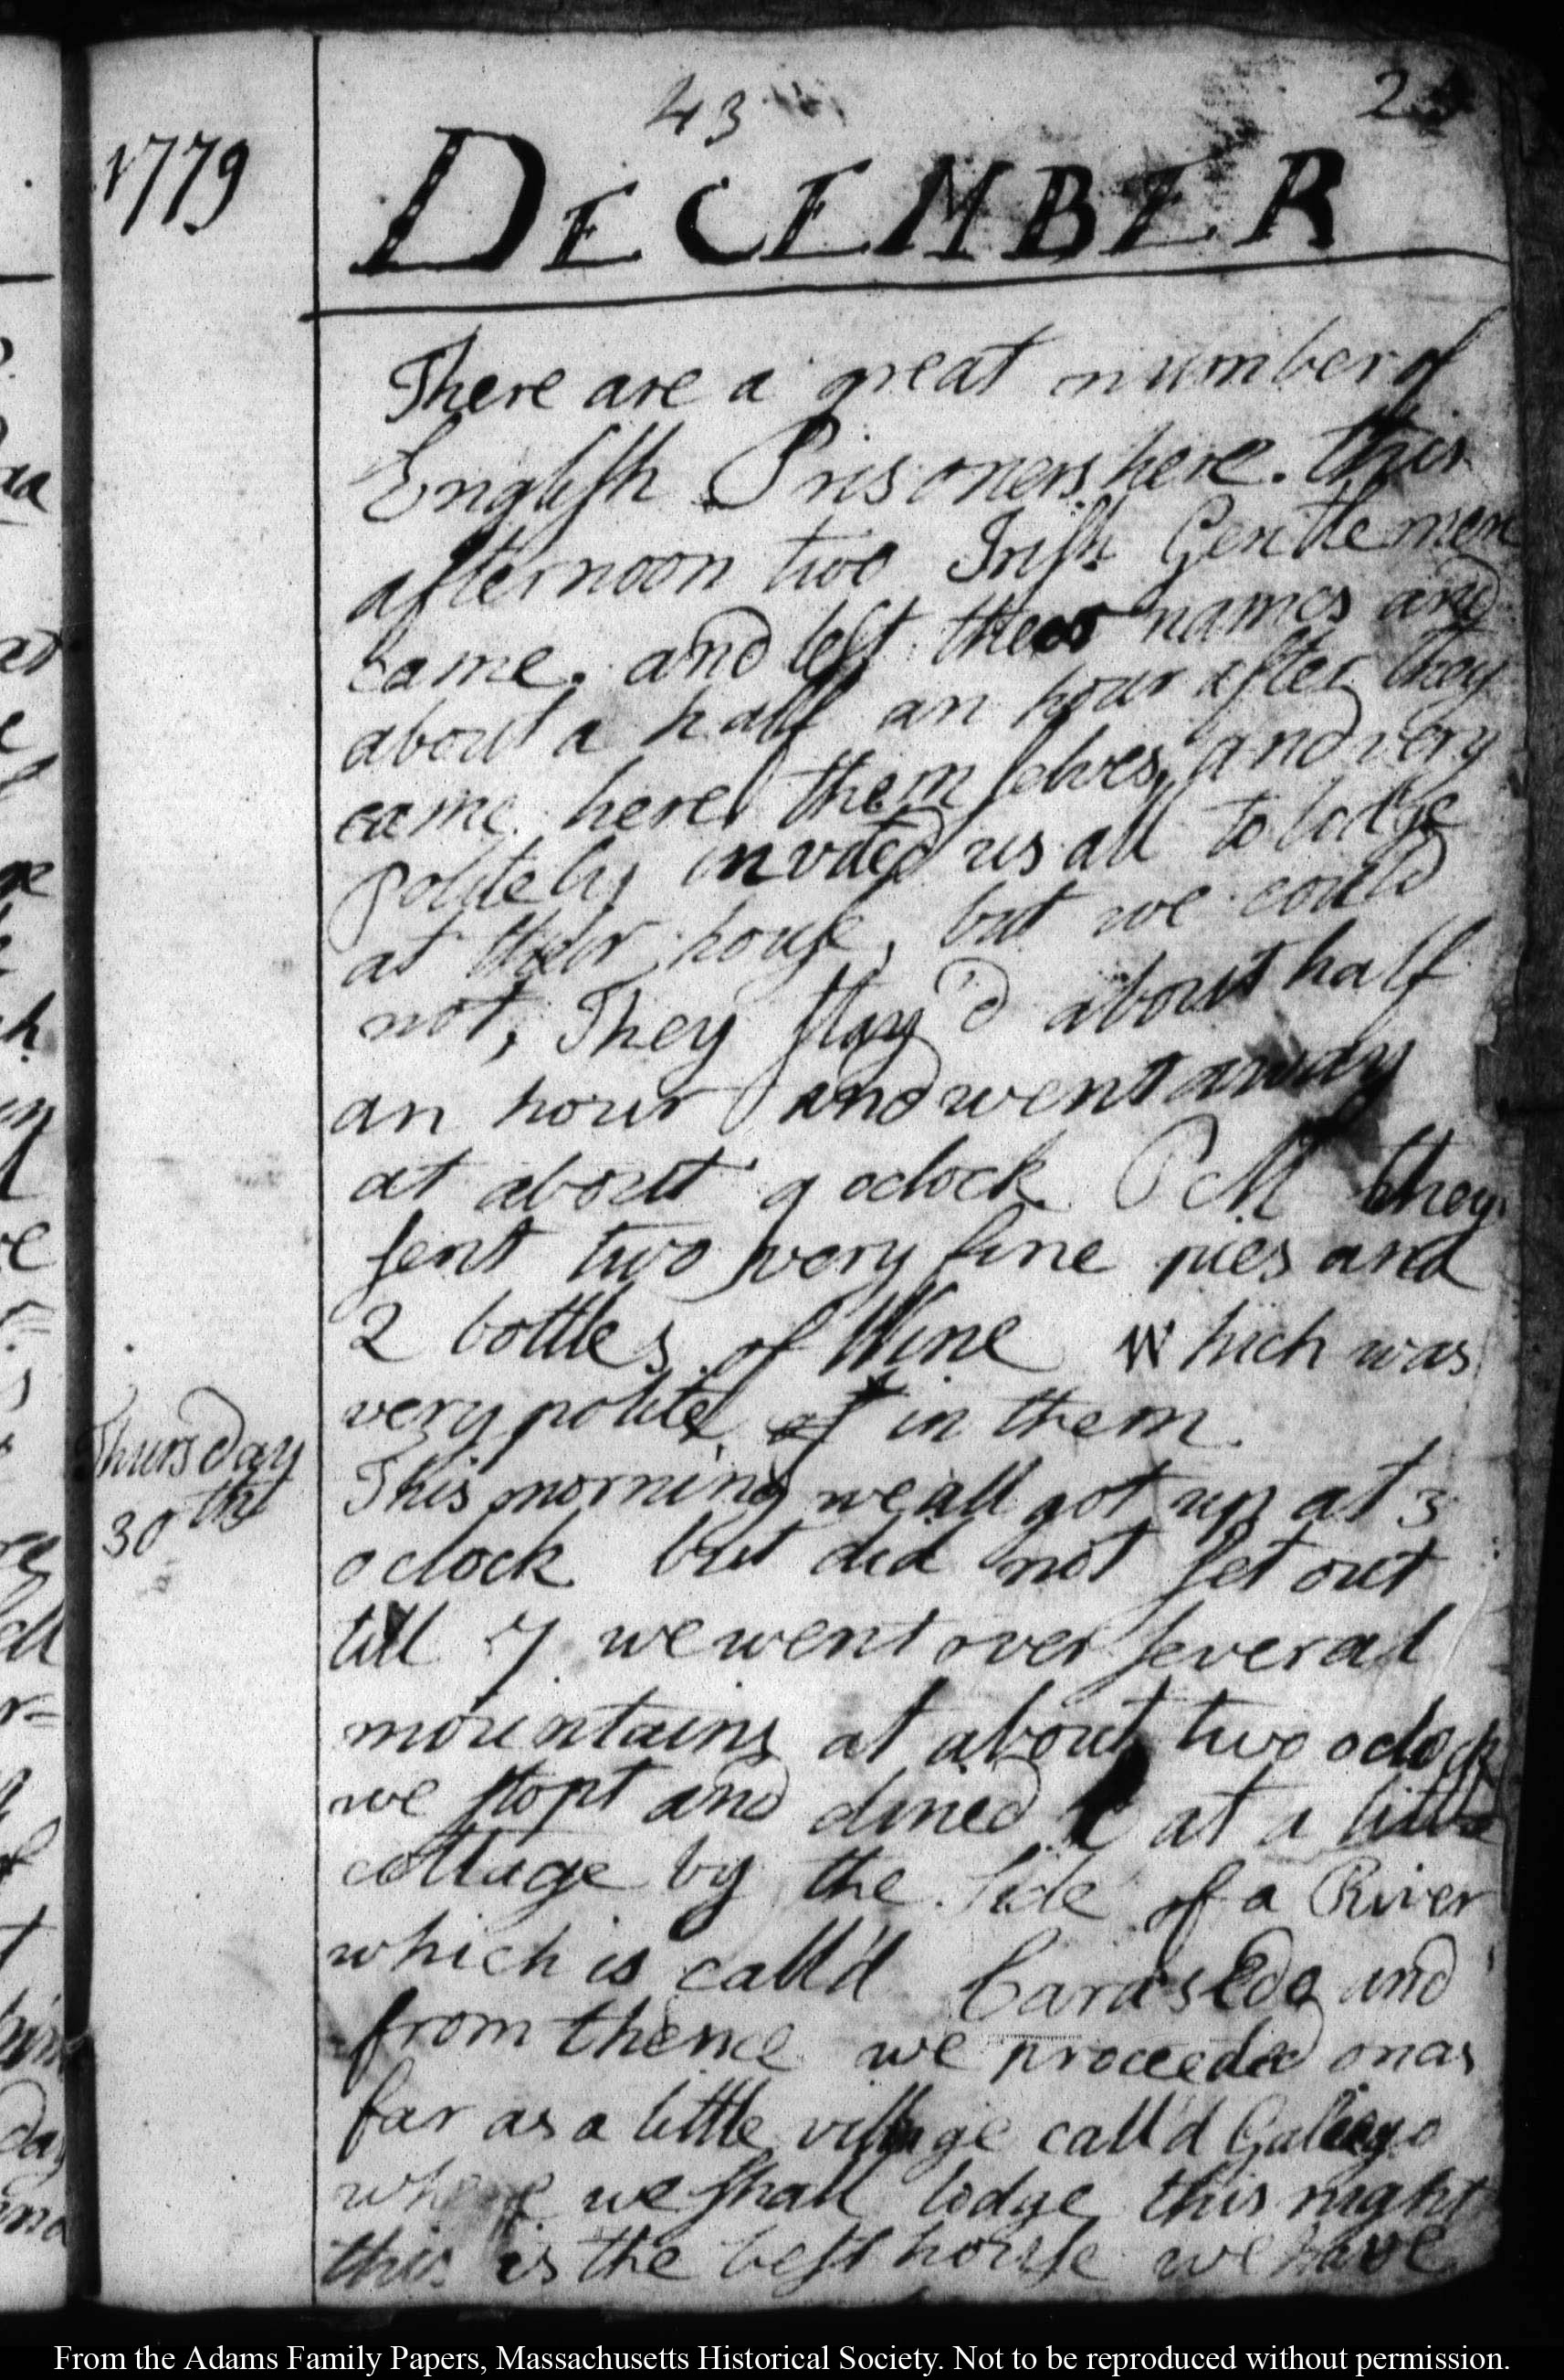 43
2
1779
DECEMBER
There are a great number of
English Prisoners here. this
afternoon two Irish Gentlemen
came. and left their names and
about a half an hour after they
came here themselves, and very
Politely invited us all to lodge
at their house, but we could
not, They stay'd about half
an hour and went away
at about 9 oclock P M they
sent two very fine pies and
2 bottles of Wine Which was
very polite of in them.
Thursday
30th
This morning we all got up at 3
oclock but did not set out
till 7 we went over several
mountains at about two oclock
we stopt and dined at a little
cottage by the side of a River
which is call'd Carasedo and
from thence we proceeded on as
far as a little village call'd
where we shall lodge this night
this is the best house we have
From the Adams Family Papers, Massachusetts Historical Society. Not to be reproduced without permission.